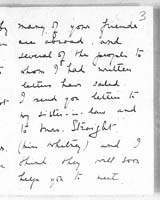 3
by many of your friends
are abroad, and
several of the people to
whom I had written
letters have sailed
I send you letters to
my sister-in-law and
to Mrs. Straight
(Miss Whitney) and I
think they will soon
help you to meet